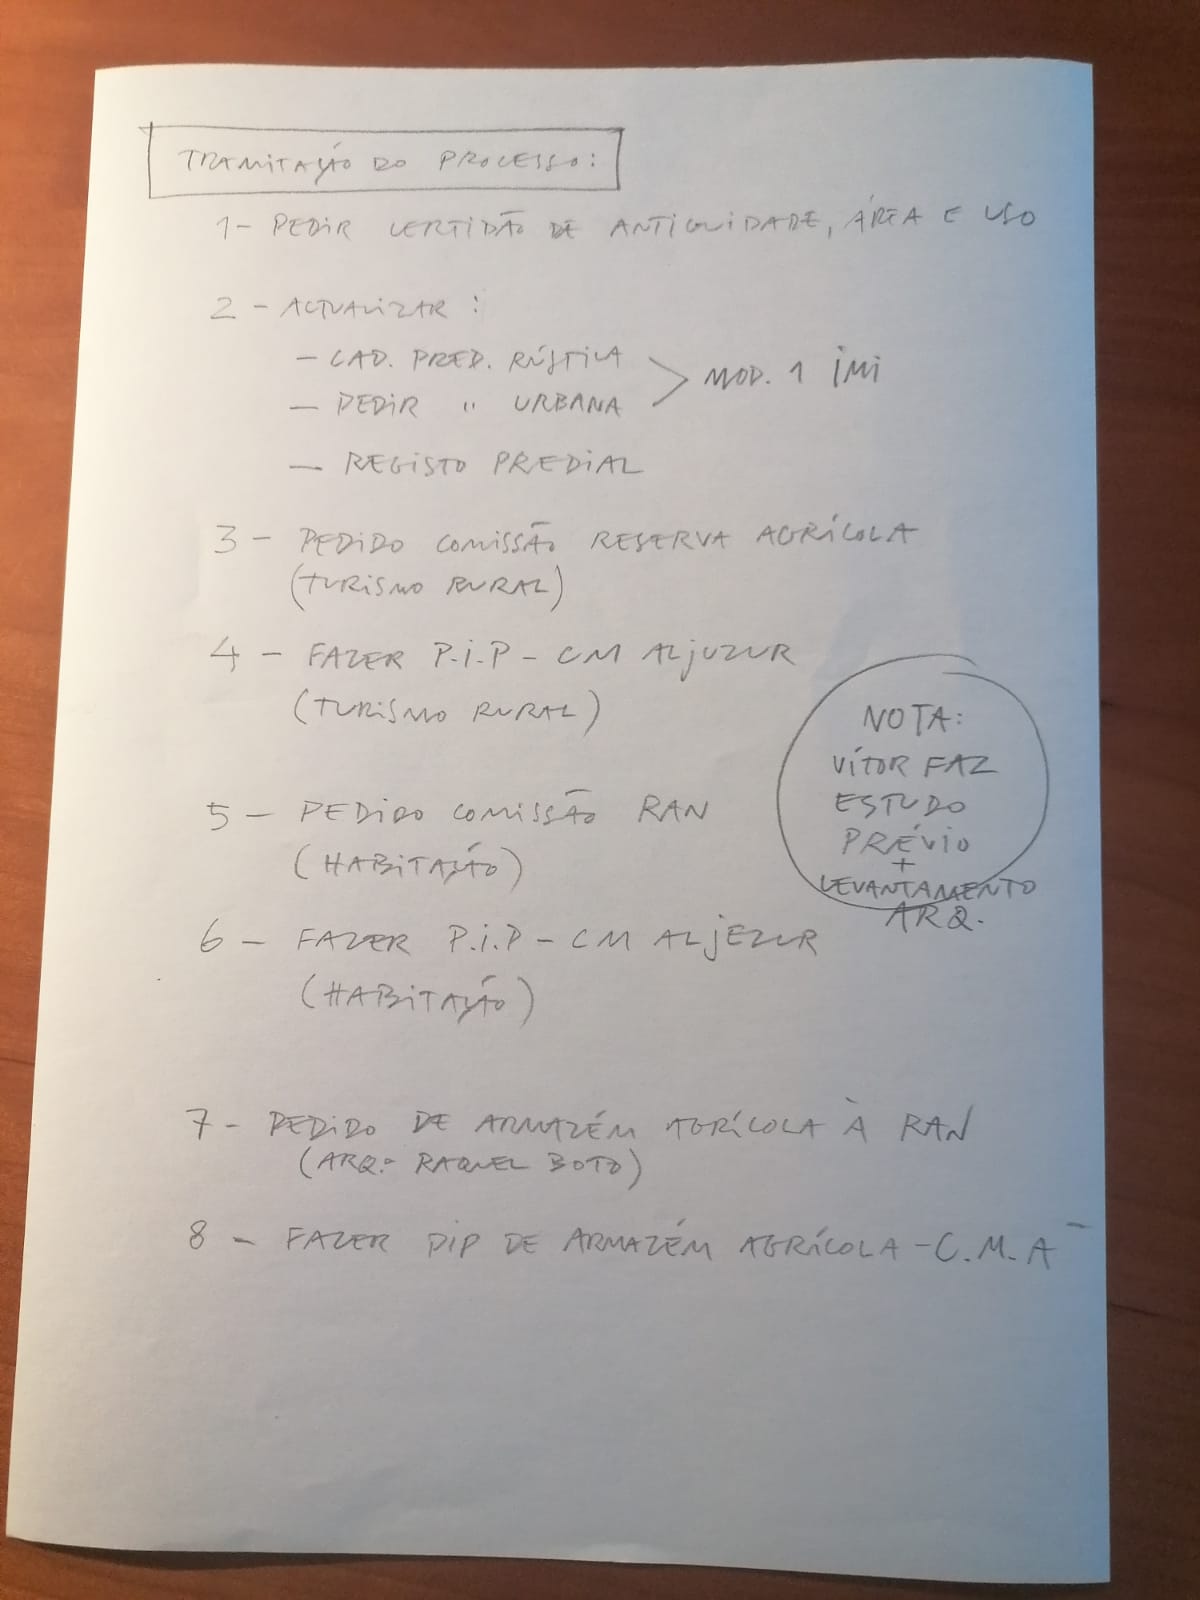 TRAMITAÇÃO DO PROCESSO:
1- PEDIR CERTIDÃO DE ANTIGUIDADE, ÁREA E USO
2 - ACTUALIZAR :
- CAD. PRED. RÚSTICA
- PEDIR " URBANA
> MOD. 1 IMI
- REGISTO PREDIAL
3 - PEDIDO COMISSÃO RESERVA AGRÍCOLA
(TURISMO RURAL)
4 - FAZER P.I.P - CM ALJUZUR
(TURISMO RURAL)
5 - PEDIDO COMISSÃO RAN
(HABITAÇÃO)
6 - FAZER P.I.P - CM ALJEZUR
(HABITAÇÃO)
NOTA:
VÍTOR FAZ
ESTUDO
PRÉVIO
+
LEVANTAMENTO
ARQ.
7 - PEDIDO DE ARMAZÉM AGRÍCOLA À RAN
(ARQ.ª RAQUEL BOTO)
8 - FAZER PIP DE ARMAZÉM AGRÍCOLA - C.M.A